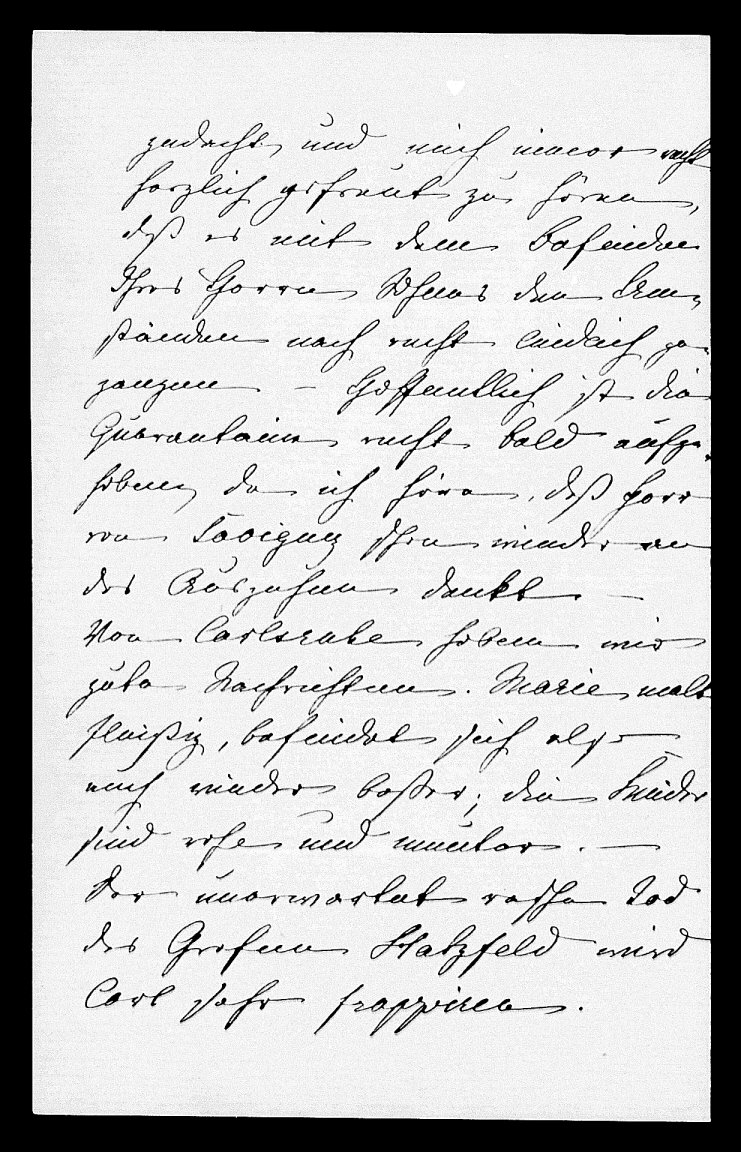 gedacht, und mich immer recht
herzlich gefreut zu hören,
daß es mit dem Befinden
Ihres Herrn Sohnes den Um-
ständen nach recht leidlich ge-
gangen – Hoffentlich ist die
Quarantaine recht bald aufge-
hoben, da ich höre, daß Herr
von Savigny schon wieder an
das Ausgehen denkt. –
Von Carlsruhe haben wir
gute Nachrichten. Marie malt
fleißig, befindet sich also
auch wieder beßer; die Kinder
sind wohl und munter. –
Der unerwartet rasche Tod
des Grafen Hatzfeld wird
Carl sehr frappiren.